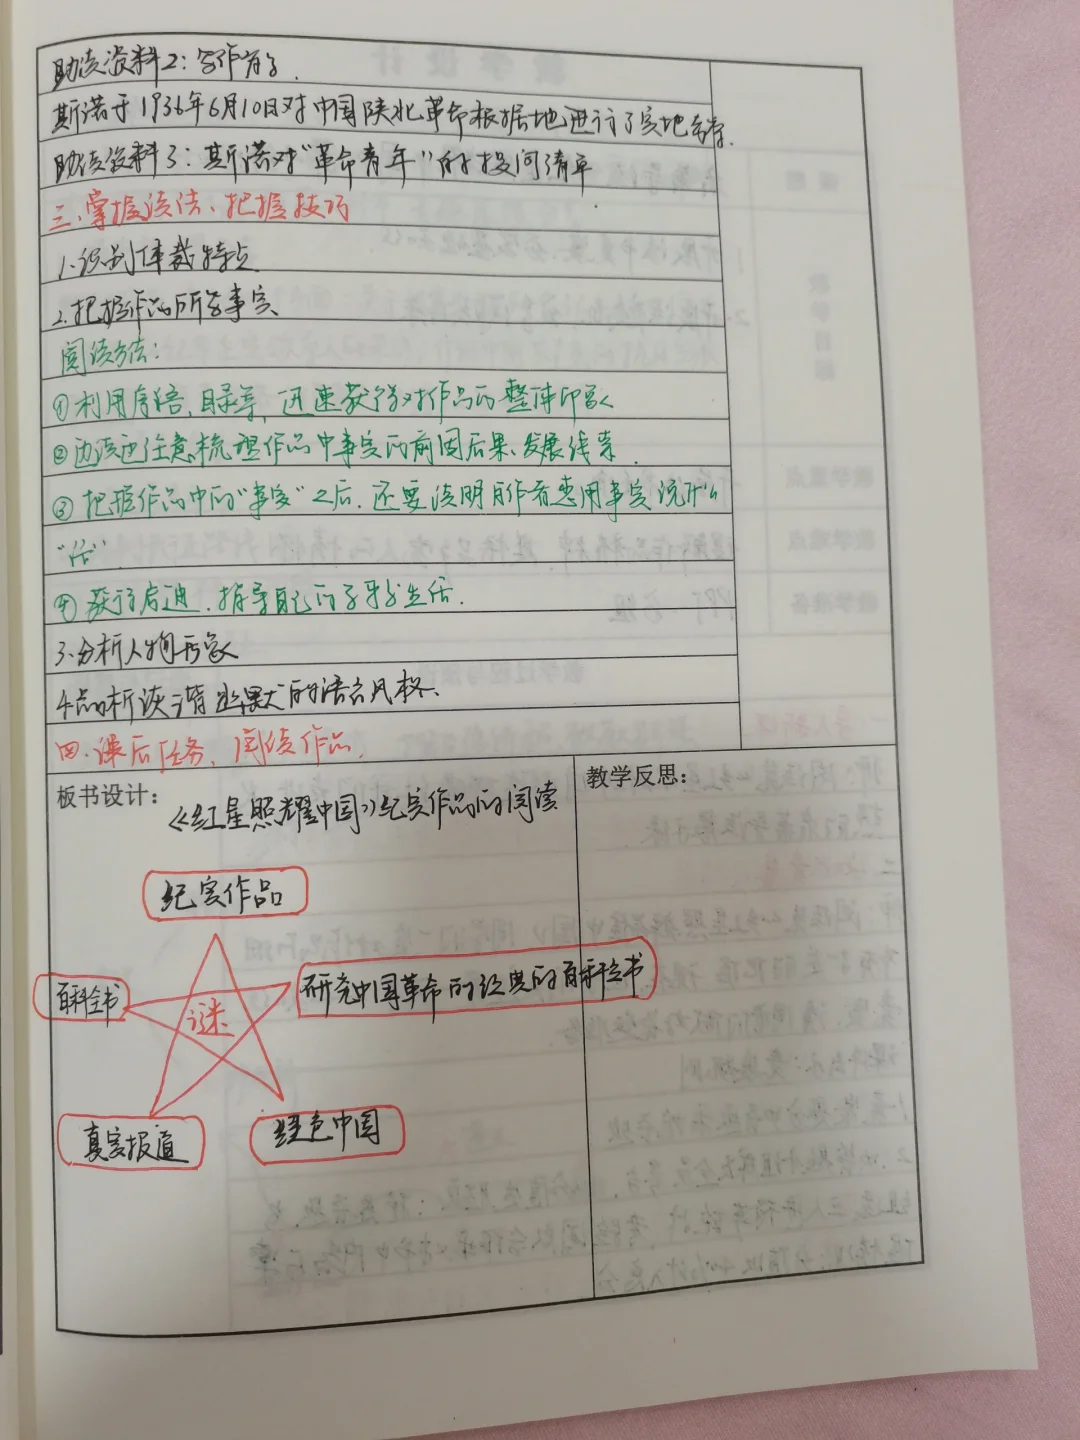 助读资料2：写作背景.
斯诺于1936年6月10日对中国陕北革命根据地进行了实地考察.
助读资料3：斯诺对“革命青年”的提问清单
三.掌握读法、把握技巧
1.识别体裁特点
2.把握作品所写事实、
阅读方法：
①利用序言,目录等,迅速获得对作品的整体印象
②边读边注意梳理作品中事实的前因后果、发展线索.
③把握作品中的“事实”之后.还要读明白作者想用事实说什么
“话”.
④获得启迪.指导自己的学习与生活.
3.分析人物形象
4.品析诙谐幽默的语言风格.
四.课后任务,阅读作品.
板书设计：
教学反思：
《红星照耀中国》纪实作品的阅读
纪实作品
百科全书
谜
研究中国革命的经典的百科全书
真实报道
红色中国